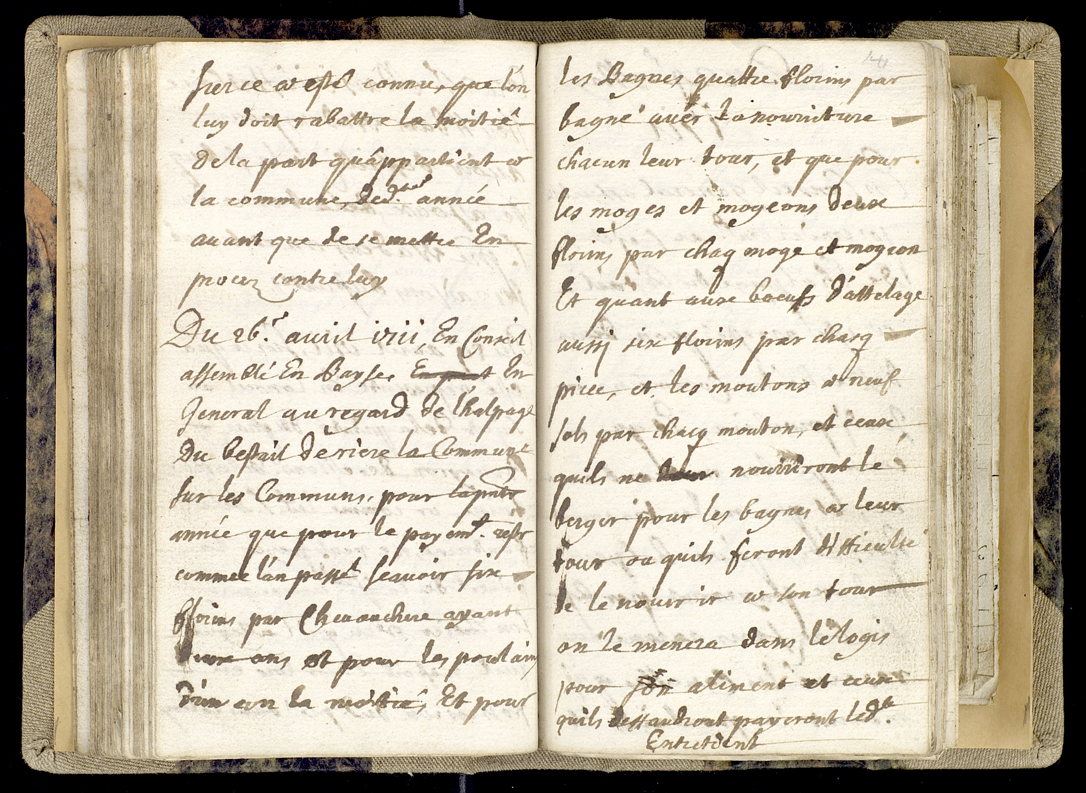 sur ce a esté connu, que lon
luy doit rabattre la moitié
de la part qu'appartient a
la commune, de lad.te année
auant que de se mettre En
procez contre luy
Du 26.e auril 1711, En Conseil
assemblé En Bayse, En En
General au regard de l'halpage
Du bestail deriere la Commune
sur les Communs, pour la pnte
année que pour le payemt. reste
comme lan passé scauoir six
florins par Cheuauchure ayant
deux ans et pour les poulains
d'un an la moitié, Et pour
14
les Bagnes quattre florins par
bagne auec la nourriture
chacun leur tour, et que pour
les moges et mogeons deux
florins par chaq moge et mogeon
Et quant aux boeufs d'attelage
aussi six florins par chacq
piece, et les moutons a neuf
sols par chacq mouton, et ceux
quils ne nourriront le
berger pour les bagnes a leur
tour ou quils feront difficulté
de le nourrir a son tour
on le menera dans le logis
pour son aliment et ceux
quils deffaudront payeront led.t
Entretdent